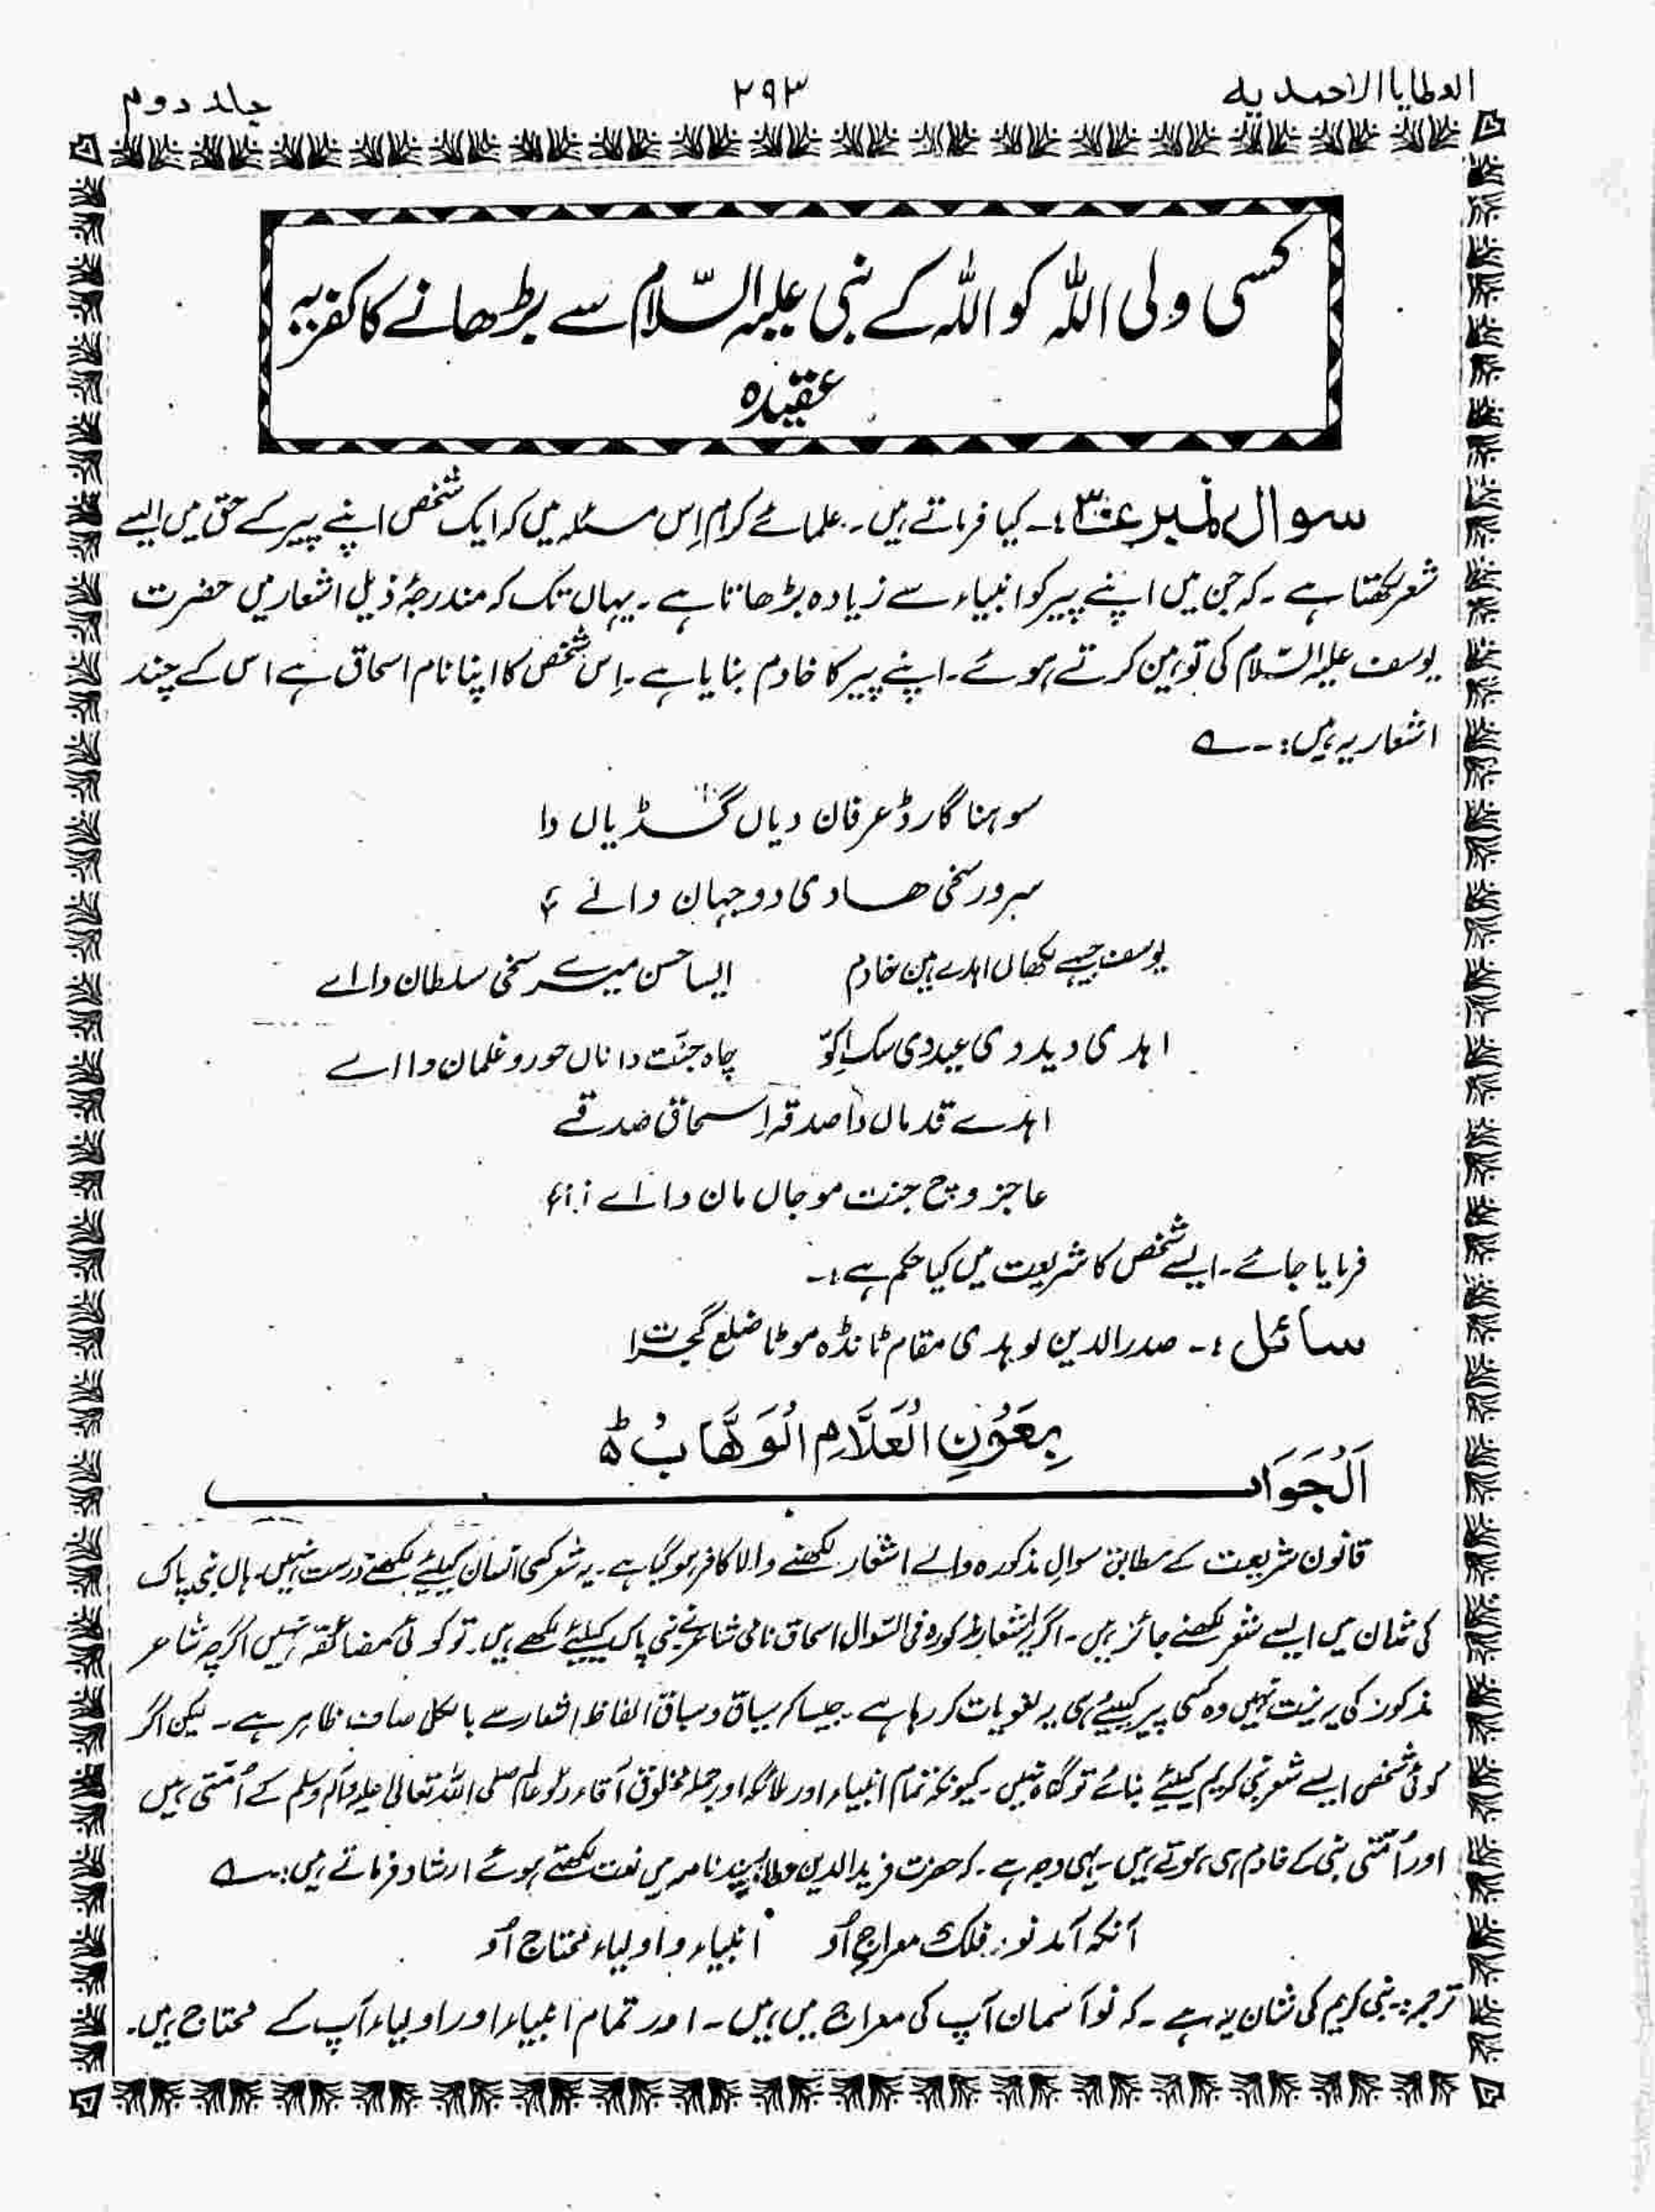 العطایا الاحمدیہ ۲۹۳ جلد دوم
کسی ولی اللہ کو اللہ کے نبی علیہ السّلام سے بڑھانے کا کفریہ
عقیدہ
سوال نمبر :۔ کیا فرماتے ہیں۔ علمائے کرام اِس مسئلہ میں کہ ایک شخص اپنے پیر کے حق میں ایسے
شعر لکھتا ہے۔ کہ جن میں اپنے پیر کو انبیاء سے زیادہ بڑھاتا ہے۔ یہاں تک کہ مندرجۂ ذیل اشعار میں حضرت
یوسف علیہ السّلام کی توہین کرتے ہوئے۔ اپنے پیر کا خادم بنایا ہے۔ اِس شخص کا اپنا نام اسحاق ہے اس کے چند
اشعار یہ ہیں:۔ ؎
سوہنا گارڈ عرفان دیاں گڈیاں دا
سرور سخی ھادی دو جہان دا اے
یوسف جیہے لکھاں اہدے ہین خادم ایسا حسن میرے سخی سلطان دا اے
اہدی دید دی عید دی سک اِکّو چاہ جنّت دا ناں حور و غلمان دا اے
اہدے قدماں دا صدقہ اِسحاق صدقے
عاجز وچ جنت موجاں مان دا اے
فرمایا جائے۔ ایسے شخص کا شریعت میں کیا حکم ہے:۔
سائل :۔ صدر الدین لوہدی مقام ٹانڈہ موٹا ضلع گجرات
بِعَوْنِ الْعَلَّامِ الْوَھَّابْ ط
اَلْجَوَاب
قانون شریعت کے مطابق سوالِ مذکورہ والے اشعار لکھنے والا کافر ہو گیا ہے۔ یہ شعر کسی انسان کیلئے لکھنے درست نہیں۔ ہاں نبی پاک
کی شان میں ایسے شعر لکھنے جائز ہیں۔ اگر اشعار مذکورہ فی السّوال اسحاق نامی شاعر نے نبی پاک کیلئے لکھے ہیں۔ تو کوئی مضائقہ نہیں اگرچہ شاعر
مذکور کی یہ نیت نہیں وہ کسی پیر کیلئے ہی یہ لغویات کر رہا ہے۔ جیسا کہ سیاق و سباق الفاظِ اشعار سے بالکل صاف ظاہر ہے۔ لیکن اگر
کوئی شخص ایسے شعر نبی کریم کیلئے بنائے تو گناہ نہیں۔ کیونکہ تمام انبیاء اور ملائکہ اور جملہ مخلوق آقاء دو عالم صلی اللہ تعالیٰ علیہ وآلہٖ وسلم کے اُمّتی ہیں
اور اُمّتی نبی کے خادم ہی ہوتے ہیں۔ یہی وجہ ہے۔ کہ حضرت فرید الدین عطار پند نامہ میں نعت لکھتے ہوئے ارشاد فرماتے ہیں:۔ ؎
آنکہ آمد نو فلک معراجِ اُو انبیاء و اولیاء محتاج اُو
ترجمہ:۔ نبی کریم کی شان یہ ہے۔ کہ نو آسمان آپ کی معراج میں ہیں۔ اور تمام انبیاء اور اولیاء آپ کے محتاج ہیں۔